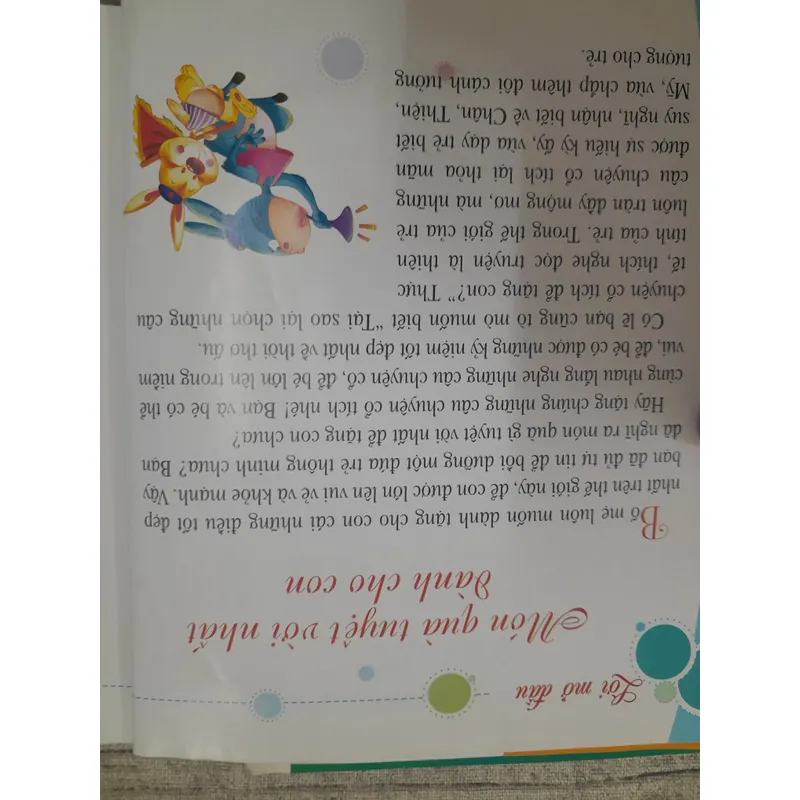 Lời mở đầu
Món quà tuyệt vời nhất
dành cho con
Bố mẹ luôn muốn dành tặng cho con cái những điều tốt đẹp
nhất trên thế giới này, để con được lớn lên vui vẻ và khỏe mạnh. Vậy
bạn đã đủ tự tin để bồi dưỡng một đứa trẻ thông minh chưa? Bạn
đã nghĩ ra món quà gì tuyệt vời nhất để tặng con chưa?
Hãy tặng chúng những câu chuyện cổ tích nhé! Bạn và bé có thể
cùng nhau lắng nghe những câu chuyện cổ, để bé lớn lên trong niềm
vui, để bé có được những kỷ niệm tốt đẹp nhất về thời thơ ấu.
Có lẽ bạn cũng tò mò muốn biết "Tại sao lại chọn những câu
chuyện cổ tích để tặng con?" Thực
tế, thích nghe đọc truyện là thiên
tính của trẻ. Trong thế giới của trẻ
luôn tràn đầy mộng mơ, mà những
câu chuyện cổ tích lại thỏa mãn
được sự hiếu kỳ ấy, vừa dạy trẻ biết
suy nghĩ, nhận biết về Chân, Thiện,
Mỹ, vừa chắp thêm đôi cánh tưởng
tượng cho trẻ.